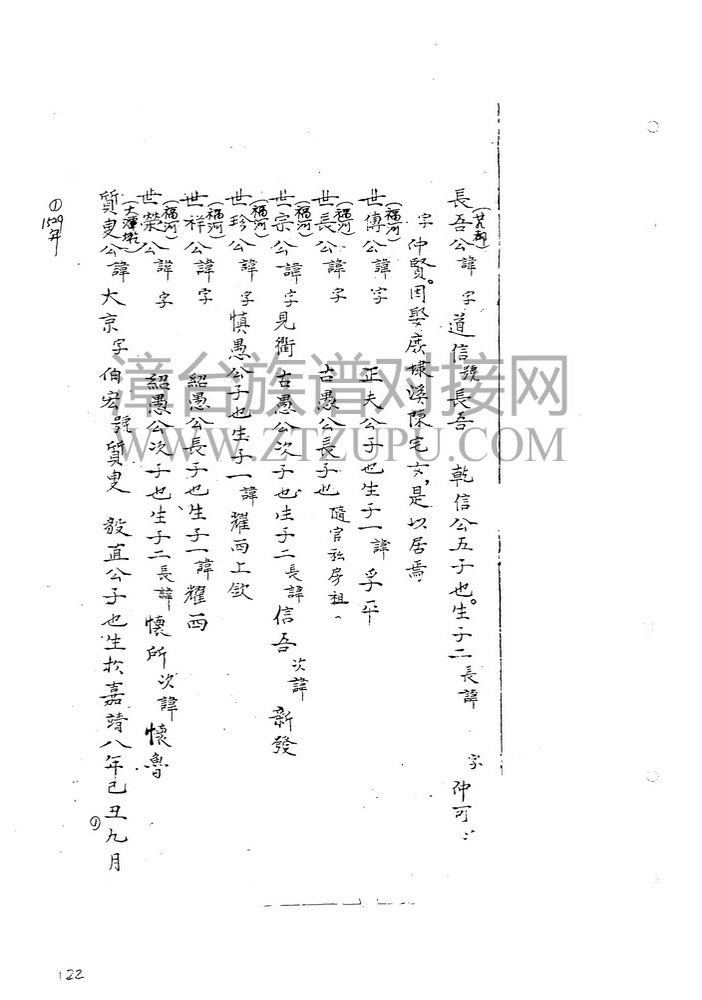 長吾公諱 字道信號長吾 乾信公五子也。生子二長諱 字仲可次
字仲賢。因娶 埭溪陳宅女，是以居焉
(福河)
世傳公諱字 正夫公子也生子一諱孚平
(福河)
世長公諱字 古愚公長子也隨官私房租
(福河)
世宗公諱字見衢 古愚公次子也生子二長諱信吾次諱新發
(福河)
世珍公諱字 慎愚公子也生子一諱耀西上欽
(福河)
世祥公諱字 紹愚公長子也生子一諱耀西
(福河)
世榮公諱字 紹愚公次子也生子二長諱懷所次諱懷魯
質叟公諱大京字伯宏號質叟 毅直公子也生於嘉靖八年己丑九月
①
①1529年
漳台族谱对接网
WWW.ZTZUPU.COM
122